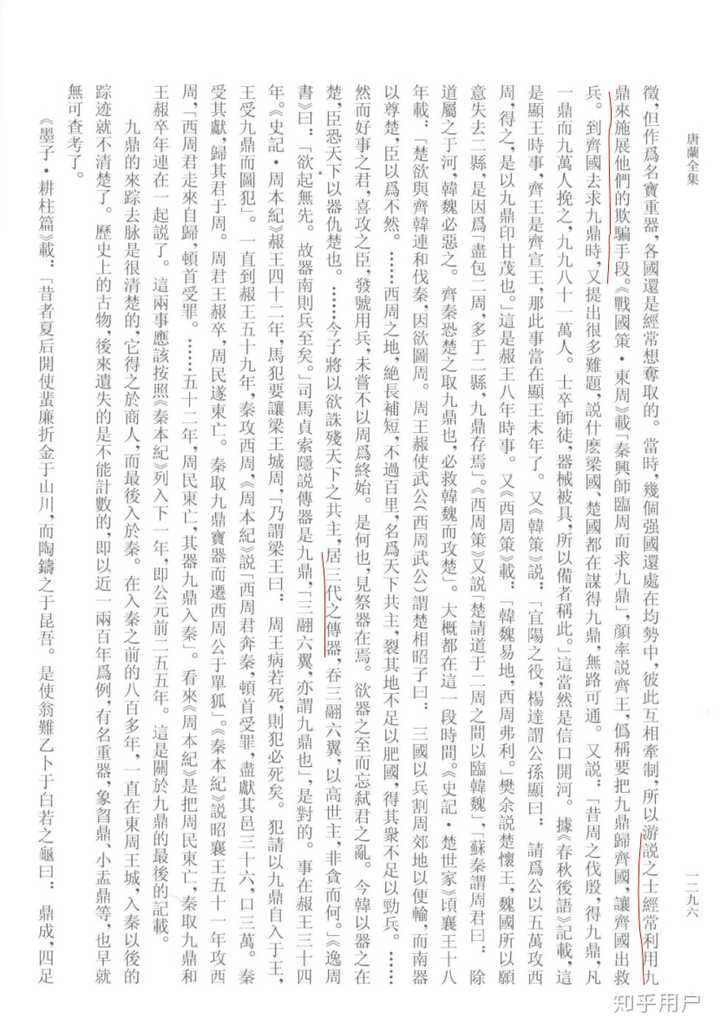 唐蘭全集
一二九六
徵，但作爲名寶重器，各國還是經常想奪取的。當時，幾個强國還處在均勢中，彼此互相牽制，所以游説之士經常利用九
鼎來施展他們的欺騙手段。《戰國策·東周》載「秦興師臨周而求九鼎」，顔率説齊王，僞稱要把九鼎歸齊國，讓齊國出救
兵。到齊國去求九鼎時，又提出很多難題，説什麽梁國、楚國都在謀得九鼎，無路可通。又説：「昔周之伐殷，得九鼎，凡
一鼎而九萬人挽之，九九八十一萬人。士卒師徒，器械被具，所以備者稱此。」這當然是信口開河。據《春秋後語》記載，這
是顯王時事，齊王是齊宣王，那此事當在顯王末年了。又《韓策》説：「宜陽之役，楊達謂公孫顯曰：請爲公以五萬攻西
周，得之，是以九鼎印甘茂也。」這是赧王八年時事。又《西周策》載：「韓魏易地，西周弗利。」樊余説楚懷王，魏國所以願
意失去二縣，是因爲「盡包二周，多于二縣，九鼎存焉」。《西周策》又説「楚請道于二周之間以臨韓魏」，「蘇秦謂周君曰：除
道屬之于河，韓魏必惡之。齊秦恐楚之取九鼎也，必救韓魏而攻楚」。大概都在這一段時間。《史記·楚世家》頃襄王十八
年載：「楚欲與齊韓連和伐秦，因欲圖周。周王赧使武公（西周武公）謂楚相昭子曰：三國以兵割周郊地以便輸，而南器
以尊楚，臣以爲不然。……西周之地，絶長補短，不過百里，名爲天下共主，裂其地不足以肥國，得其衆不足以勁兵。……
然而好事之君，喜攻之臣，發號用兵，未嘗不以周爲終始。是何也，見祭器在焉。欲器之至而忘弑君之亂。今韓以器之在
楚，臣恐天下以器仇楚也。……今子將以欲誅殘天下之共主，居三代之傳器，吞三翮六翼，以高世主，非貪而何。」《逸周
書》曰：「欲起無先。故器南則兵至矣。」司馬貞索隱説傳器是九鼎，「三翮六翼，亦謂九鼎也」，是對的。事在赧王三十四
年。《史記·周本紀》赧王四十二年，馬犯要讓梁王城周，「乃謂梁王曰：周王病若死，則犯必死矣。犯請以九鼎自入于王，
王受九鼎而圖犯」。一直到赧王五十九年，秦攻西周，《周本紀》説「西周君奔秦，頓首受罪，盡獻其邑三十六，口三萬。秦
受其獻，歸其君于周。周君王赧卒，周民遂東亡。秦取九鼎寶器而遷西周公于單狐」。《秦本紀》説昭襄王五十一年攻西
周，「西周君走來自歸，頓首受罪。……五十二年，周民東亡，其器九鼎入秦」。看來《周本紀》是把周民東亡，秦取九鼎和
王赧卒年連在一起説了。這兩事應該按照《秦本紀》列入下一年，即公元前二五五年。這是關於九鼎的最後的記載。
九鼎的來踪去脉是很清楚的，它得之於商人，而最後入於秦。在入秦之前的八百多年，一直在東周王城，入秦以後的
踪迹就不清楚了。歷史上的古物，後來遺失的是不能計數的，即以近一兩百年爲例，有名重器，象曶鼎、小盂鼎等，也早就
無可查考了。
《墨子·耕柱篇》載：「昔者夏后開使蜚廉折金于山川，而陶鑄之于昆吾。是使翁難乙卜于白若之龜曰：鼎成，四足
知乎用户